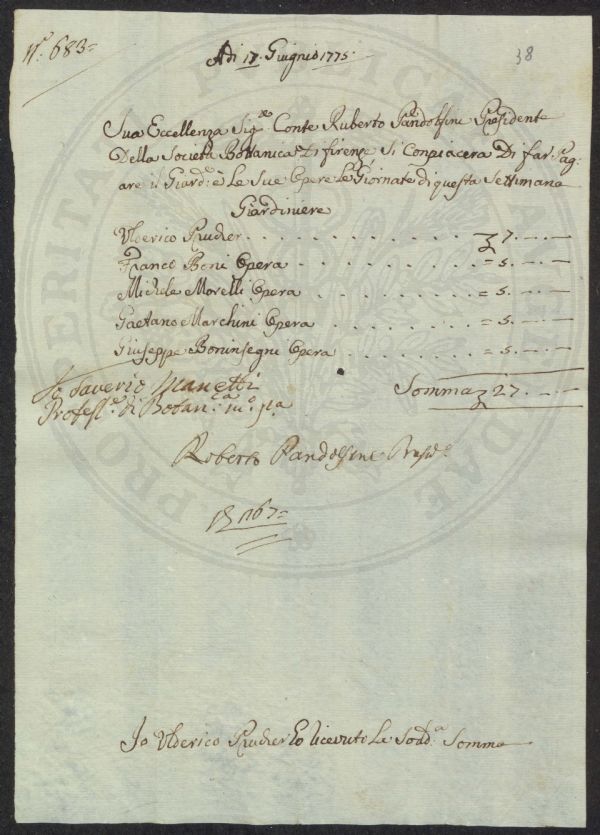 N.º 683=
Adi 17. Giugnio 1775.
38
Sua Eccellenza Sig.re Conte Ruberto Pandolfini Presidente
Della Società Bottanica Di firenze Si Conpiacera Di far Pag:
are il Giard.e è Le Sue Opere Le Giornate di questa Settimana
Giardiniere
Ulderico Prucker . . . . . . . . 7. — · —
Franco Boni Opera . . . . . . . = 5. — · —
Michele Morelli Opera . . . . . . = 5. — · —
Gaetano Marchini Opera . . . . . = 5. — · —
Giuseppe Boninsegni Opera . . . . = 5. — · —
Somma 27. — · —
Saverio Manetti
Profess.e di Botan.ca
Roberto Pandolfini Presid.e
1767=
Io Ulderico Prucker ho ricevuto La Sodd.a Somma
PROSPERITATI PUBLICAE AUGENDAE